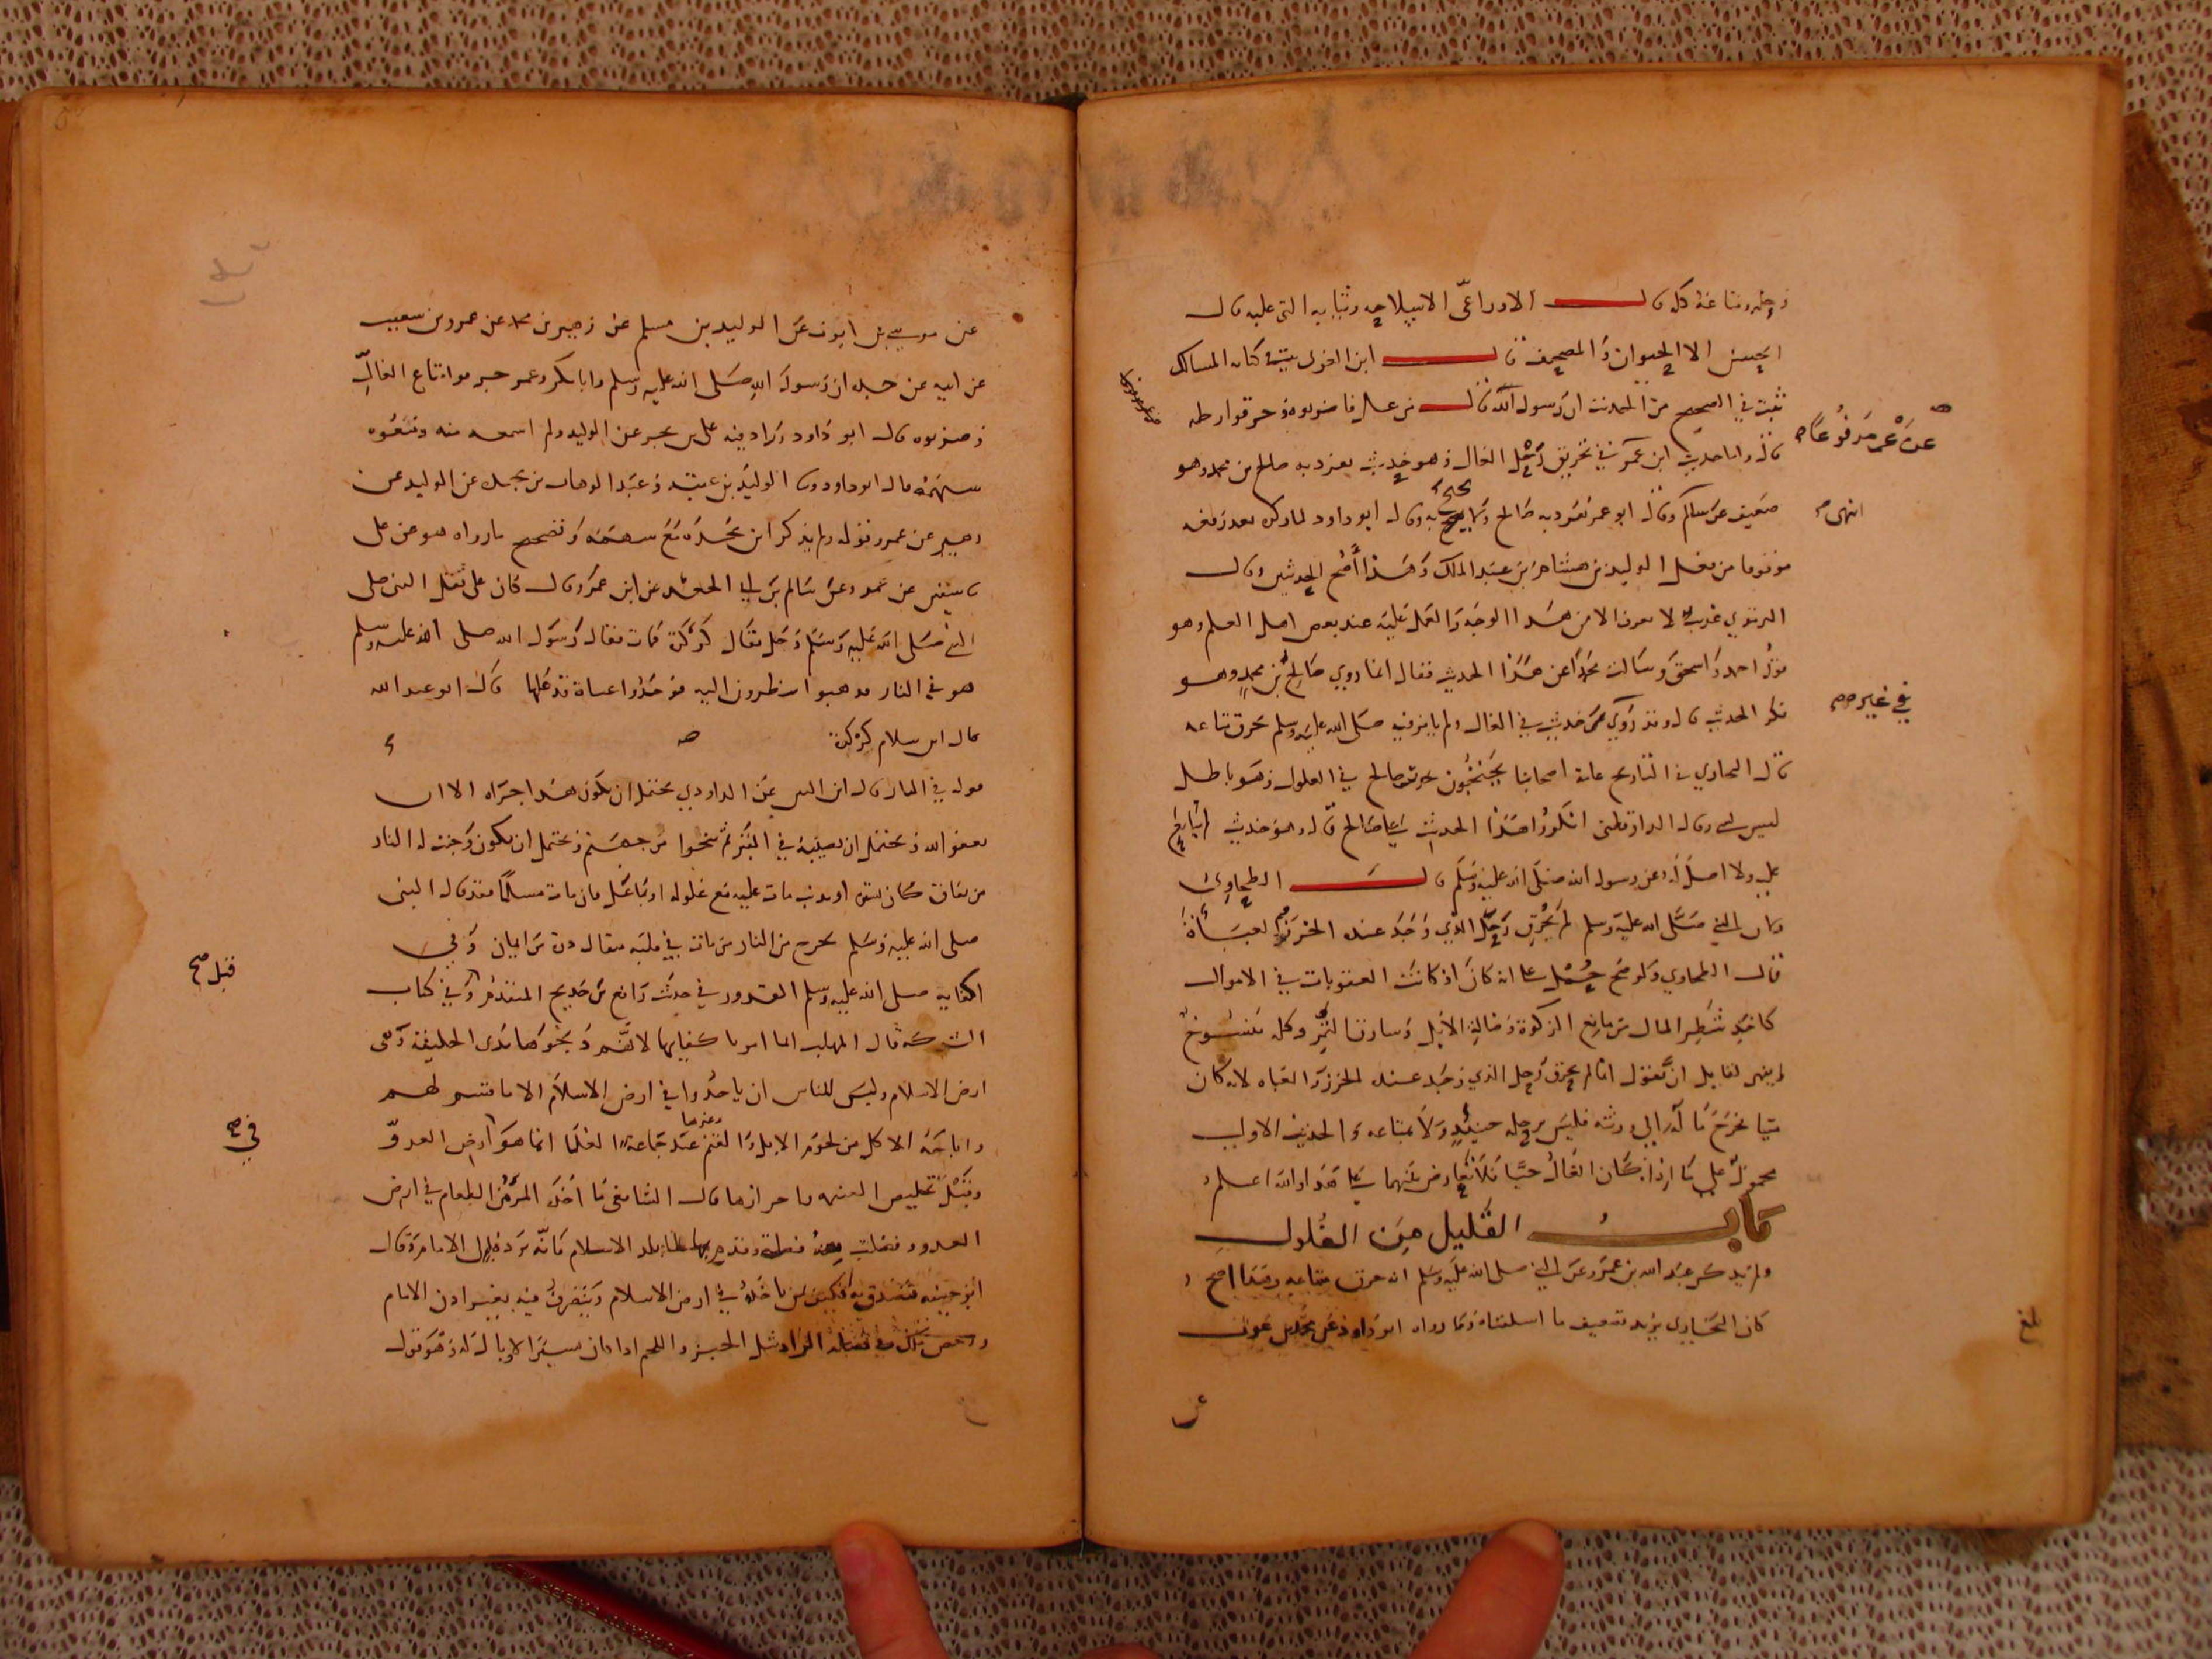 رحله ومتاعه كله قال الاوزاعي الا سلاحه وثيابه التي عليه قال
الحسن الا الحيوان والمصحف قال ابن العربي في كتابه المسالك
ثبت في الصحيح من المحدثين ان رسول الله قال من غل فاضربوه وحرقوا رحله
قال واما حديث ابن عمر في تحريق رحل الغال فهو حديث تفرد به صالح بن محمد وهو
ضعيف عن سالم وقال ابو عمر تفرد به صالح ولا يحتج به وقال ابو داود لما ذكره بعد رفعه
موقوفا من فعل الوليد بن هشام بن عبد الملك وهذا أصح الحديثين وقال
الترمذي غريب لا يعرف الا من هذا الوجه والعمل عليه عند بعض اهل العلم وهو
قول احمد واسحق وسألت محمدا عن هذا الحديث فقال انما روى صالح بن محمد وهو
منكر الحديث قال وقد روي في حديث في الغال ولم يأمر فيه صلى الله عليه وسلم بحرق متاعه
قال البخاري في التاريخ عامة اصحابنا يحتجون بحديث صالح في الغلول وهو باطل
ليس بشيء وقال الدارقطني انكروا هذا الحديث على صالح قال وهو حديث لم يتابع
عليه ولا اصل له عن رسول الله صلى الله عليه وسلم قال الطحاوي
وكان النبي صلى الله عليه وسلم لم يحرق رحل الذي وجد عنده الخرز والعباءة
قال الطحاوي ولو صح حمل على انه كان اذ كانت العقوبات في الاموال
كأخذ شطر المال من مانع الزكوة وضالة الابل وسارق التمر وكله منسوخ
لم ينهر لقايل ان يقول انما لم يحرق رحل الذي وجد عنده الخرز والعباه لانه كان
ميتا فخرج ماله الى ورثته فليس برحله حينئذ ولا بمتاعه والحديث الاول
محمول على ما اذا كان الغال حيا فلا تعارض بينهما على هذا والله اعلم
باب القليل من الغلول
ولم يذكر عبد الله بن عمرو عن النبي صلى الله عليه وسلم انه حرق متاعه وهذا اصح
كان البخاري يريد تضعيف ما اسلفناه وكما رواه ابو داود عن محمد بن عوف
عن عمر مرفوعا
انتهى
في غير
بلغ
عن موسى بن ايوب عن الوليد بن مسلم عن زهير بن محمد عن عمرو بن شعيب
عن ابيه عن جده ان رسول الله صلى الله عليه وسلم وابا بكر وعمر حرقوا متاع الغال
وضربوه قال ابو داود وزاد فيه علي بن بحر عن الوليد ولم اسمعه منه ومنعوه
سهمه قال ابو داود وثنا الوليد بن عتبة وعبد الوهاب بن نجدة عن الوليد عن
زهير عن عمرو قوله ولم يذكر ابن نجدة منع سهمه وتصحيح ما رواه هو عن علي
قال سفين عن عمرو عن سالم بن ابي الجعد عن ابن عمرو قال كان على ثقل النبي صلى
النبي صلى الله عليه وسلم رجل يقال له كركرة فمات فقال رسول الله صلى الله عليه وسلم
هو في النار فذهبوا ينظرون اليه فوجدوا عباة قد غلها قال ابو عبد الله
قال ابن سلام كركرة
قوله في النار قال ابن التين عن الداودي يحتمل ان يكون هذا جزاه الا ان
يعفو الله ويحتمل ان يصيبه في القبر ثم ينجوا من جهنم ويحتمل ان يكون وجبت له النار
من نفاق كان يسره او بذنب مات عليه مع غلوله او بما غل فان مات مسلما فقد قال النبي
صلى الله عليه وسلم يخرج من النار من مات في قلبه مثقال ذرة من ايمان وفي
اكفايه صلى الله عليه وسلم القدور في حديث رافع بن خديج المتقدم وفي كتاب
الشركة قال المهلب انما امر باكفايها لانهم ذبحوها بذي الحليفة وهي
ارض الاسلام وليس للناس ان ياخذوا في ارض الاسلام الا ما قسم لهم
واباحة الاكل من لحوم الابل والغنم وغيرها عند جماعة العلما انما هو في ارض العدو
وقبل تخليص الغنيمة واحرازها قال الشافعي ما اخذه المرء من الطعام في ارض
العدو وفضلت منه فضلة وقدم بها بلد الاسلام فانه يرد ذلك الى الامام وقال
ابو حنيفة يتصدق به وكيف من ما خذه في ارض الاسلام ويتصرف فيه بغير اذن الامام
ورخص مالك في فضلة الزاد مثل الخبز واللحم اذا كان يسيرا لا بال له وهو قول
قبل صح
في صح